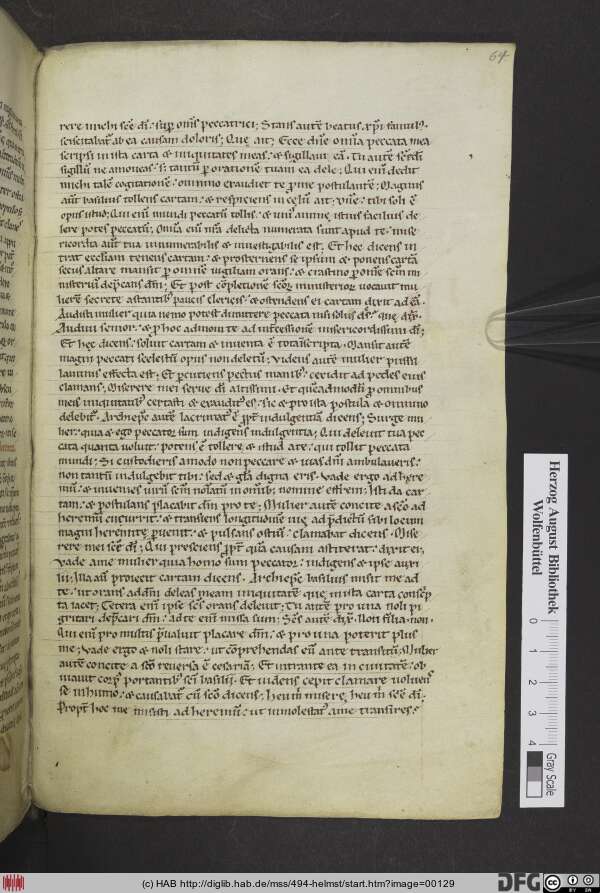 64
rere michi sc̄e dī. sup̄ om̄s peccatrici; Stans autē beatus xp̄i famul᷒
sciscitabat᷑ ab ea causam doloris; Que ait; Ecce dn̄e om̄ia peccata mea
scripsi in ista carta & iniquitates meas. & sigillaui eā. Tu autē sc̄e dī
sigillū ne amoueas. s; tantū p orationē tuam ea dele; Qui enī dedit
michi talē cogitationē. omnino exaudiet te p me postulantē; Magnus
aut̄ basilius tollens cartam. & respiciens in celū ait; Dn̄e. tibi soli ē
opus istud; Qui enī mundi peccatū tollis. & uni᷒ anime istius facilius de
lere potes peccatū; Om̄ia enī nr̄a delicta numerata sunt apud te. mise
ricordia aut̄ tua innumerabilis & inuestigabilis est. Et hec dicens in
trat eccl̄iam tenens cartam. & prosternens se ipsum & ponens cartā
secus altare mansit p omnē uigiliam orans. & crastino p omnē sc̄m mi
nisteriū dep̄cans dm̄; Et post cōpletionē sc̄oꝝ ministerioꝝ uocauit mu
lierē secrete astantib᷒ paucis clericis. & ostendens ei cartam dixit ad eā.
Audisti mulier quia nemo potest dimittere peccata nisi solus ds̄. que dix̄.
Audiui senior. & p hoc admoui te ad int̄cessionē misericordissimi dī;
Et hec dicens. soluit cartam & inuenta ē tota inscripta. Mansit autē
magni peccati scelestū opus non deletū; Videns autē mulier pusil
lanimis effecta est; Et p cutiens pectus manib᷒. cecidit ad pedes eius
clamans; Miserere mei serue dī altissimi. Et quēadmodū p omnibus
meis iniquitatib᷒ certasti & exaudit᷒ es. sic & p ista postula & omnino
delebit᷑. Archiep̄c autē lacrimat᷒ ē p̄pt̄ indulgentiā dicens; Surge mu
lier. quia & ego peccator sum indigens indulgentia; Qui deleuit tua pec
cata quanta uoluit. potens ē tollere & istud a te. qui tollit peccata
mundi; Si custodieris amodo non peccare & uias dn̄i ambulaueris.
non tantū indulgebit tibi. sed & gl̄a digna eris. Vade ergo ad here
mū. & inuenies uirū sc̄m nolatū in om̄ib᷒. nomine effrem; Isti da car
tam. & postulans placabit dm̄ pro te; Mulier autē concite a sc̄o ad
heremū cucurrit. & transiens longitudinē uie ad p̄dictū sibi locum
magni heremite p uenit. & pulsans ostiū. clamabat dicens. Mise
rere mei sc̄e dī; Qui presciens p̄pt̄ quā causam astiterat. dixit ei;
Vade a me mulier quia homo sum peccator. indigens & ipse auxi
lii; Illa aut̄ proiecit cartam dicens. Archiep̄c basilius misit me ad
te. ut orans ad dm̄ deleas meam iniquitatē que in ista carta conscp̄
ta iacet; Cetera enī ipse sc̄s orans deleuit; Tu autē pro una noli pi
gritari dep̄cari dm̄. ad te enī missa sum; Sc̄s autē dix̄. Noli filia. non
Qui enī pro multis p̄ualuit placare dm̄. & pro una poterit plus
me; Vade ergo & noli stare. ut cōprehendas eū ante transitū; Mulier
autē concite a sc̄o reuersa ē cesariā. Et intrante ea in ciuitatē. ob
uiauit corp᷒ portantib᷒ sc̄i basilij. Et uidens cepit clamare uoluens
se in humo. & causabat᷑ cū sc̄o dicens; heu m̄ misere. heu m̄ sc̄e dī.
Propt̄ hoc me misisti ad heremū. ut inmolestat᷒ a me transires;
Herzog August Bibliothek
Wolfenbüttel
0
1
2
3
4
Gray Scale
(c) HAB http://diglib.hab.de/mss/494-helmst/start.htm?image=00129
DFG
cc BY SA